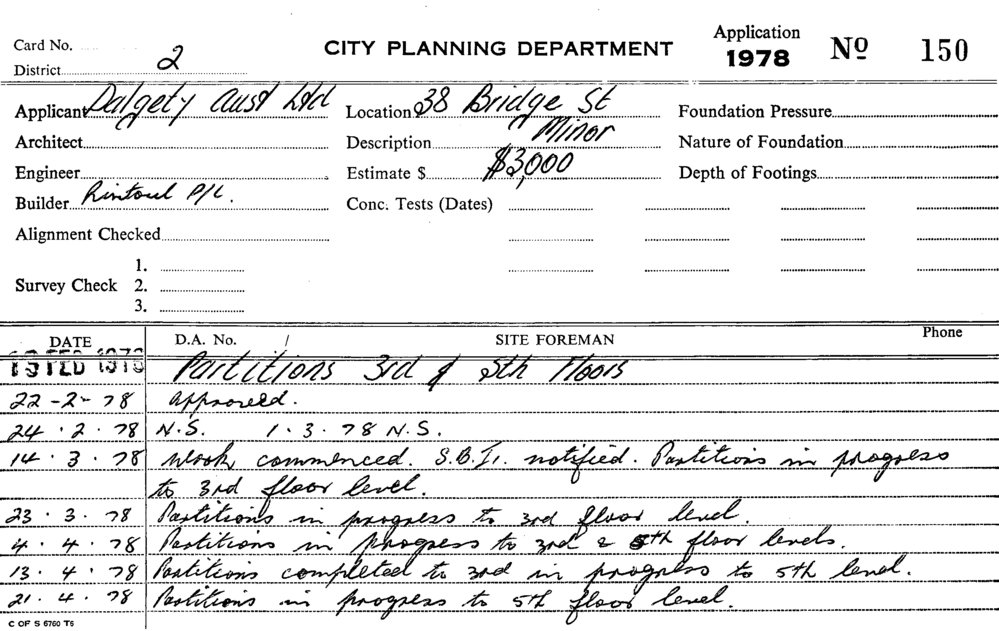 Card No.
CITY PLANNING DEPARTMENT
Application
1978 No 150
District 2
Applicant Dalgety Aust Ltd Location 38 Bridge St Foundation Pressure
Architect Description Minor Nature of Foundation
Engineer Estimate $ $3,000 Depth of Footings
Builder Rintoul P/L. Conc. Tests (Dates)
Alignment Checked
Survey Check 1.
2.
3.
DATE D.A. No. / SITE FOREMAN Phone
FEB 1978 Partitions 3rd & 5th Floors
22-2-78 Approved.
24.2.78 N.S. 1.3.78 N.S.
14.3.78 Work commenced. S.B.I. notified. Partitions in progress
to 3rd floor level.
23.3.78 Partitions in progress to 3rd floor level.
4.4.78 Partitions in progress to 3rd & 5th floor levels.
13.4.78 Partitions completed to 3rd in progress to 5th level.
21.4.78 Partitions in progress to 5th floor level.
C OF S 6760 T6